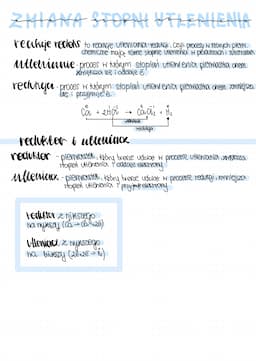 ZMIANA STOPNI UTLENIENIA
reakcje redoks to reakcje utleniania-redukcji, czyli procesy w których pierw.
chemiczne mają różne stopnie utlenienia w produktach i substratach
utlenianie - proces w którym stopień utlenienia pierwiastka
zwiększa się i oddaje e⁻
redukcja - proces w którym stopień utlenienia pierwiastka zmniejsza
się i przyjmuje e⁻
Ca + 2HCl → CaCl₂ + H₂
utlenianie
redukcja
reduktor i utleniacz
reduktor - pierwiastek, który bierze udział w procesie utleniania, zwiększa
stopień utlenienia i oddaje elektrony
utleniacz - pierwiastek, który bierze udział w procesie redukcji, zmniejsza
stopień utlenienia i przyjmuje elektrony
reduktor z niższego
na wyższy
utleniacz z wyższego
na niższy